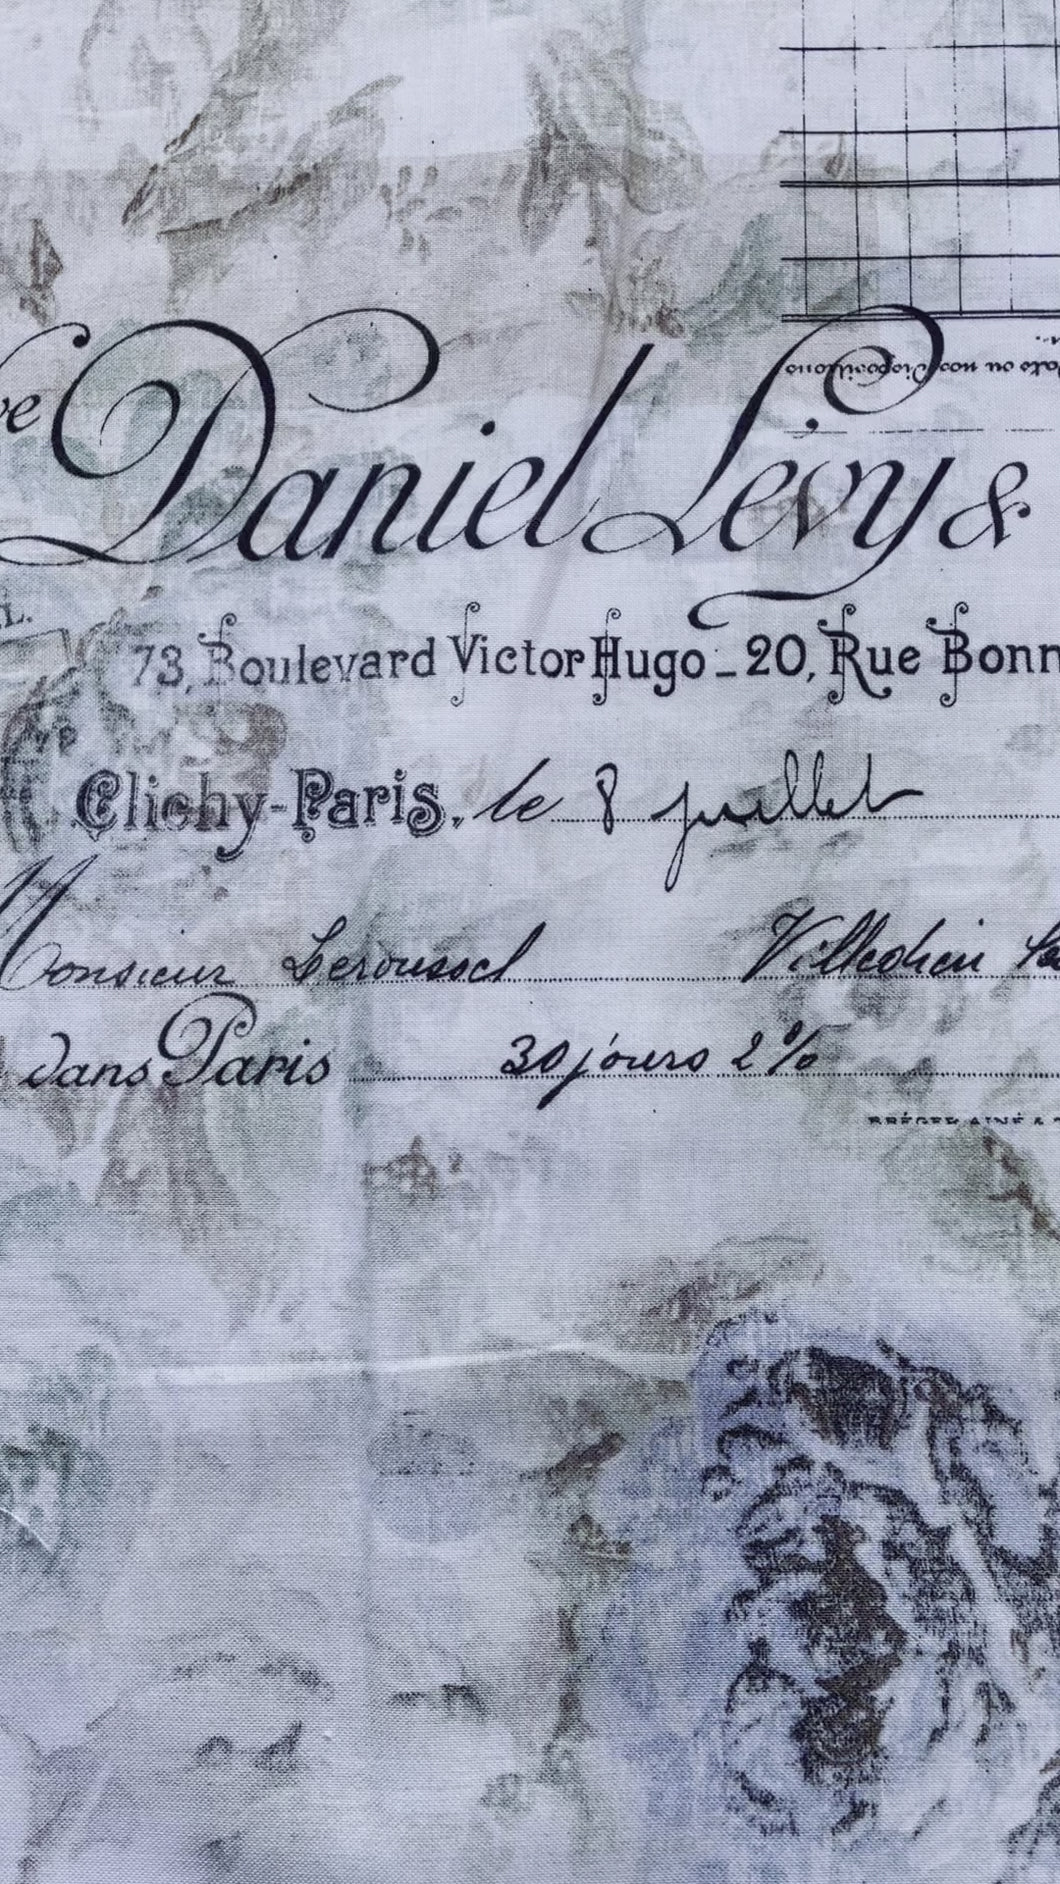 ve Daniel Lévy &
L.
73, Boulevard Victor Hugo - 20, Rue Bonn
Clichy-Paris, le 8 juillet
Monsieur Leroussel Villedieu
dans Paris 30 jours 2 %